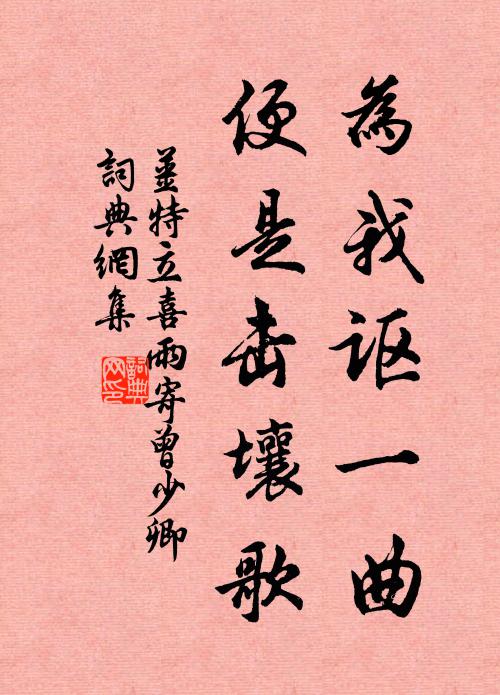 為我讴一曲
便是击壤歌
姜特立喜雨寄曾少卿
詞典網集
詞典網印